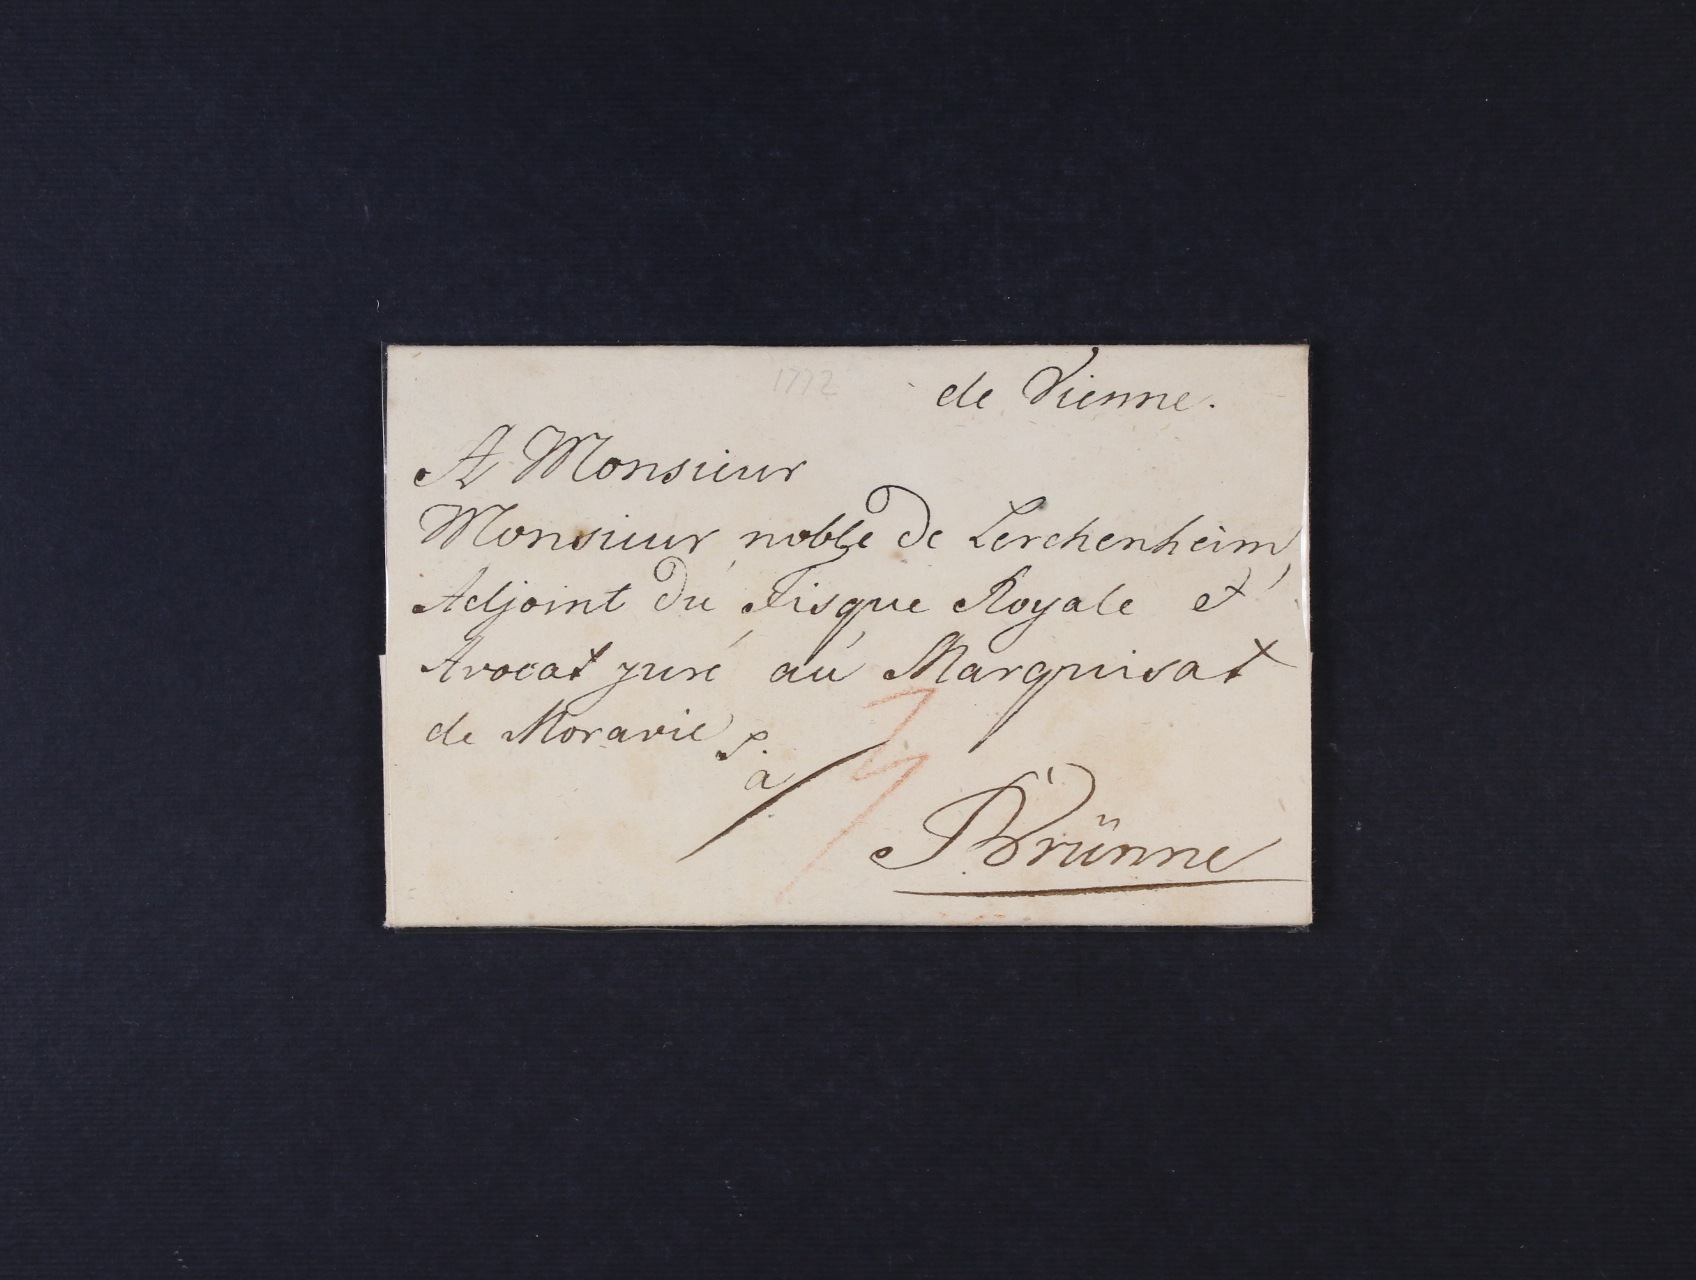 1772
de Vienne.
A Monsieur
Monsieur noble de Lerchenheim,
Adjoint du Fisque Royale et
Avocat juré au Marquisat
de Moravie
à
Brünne